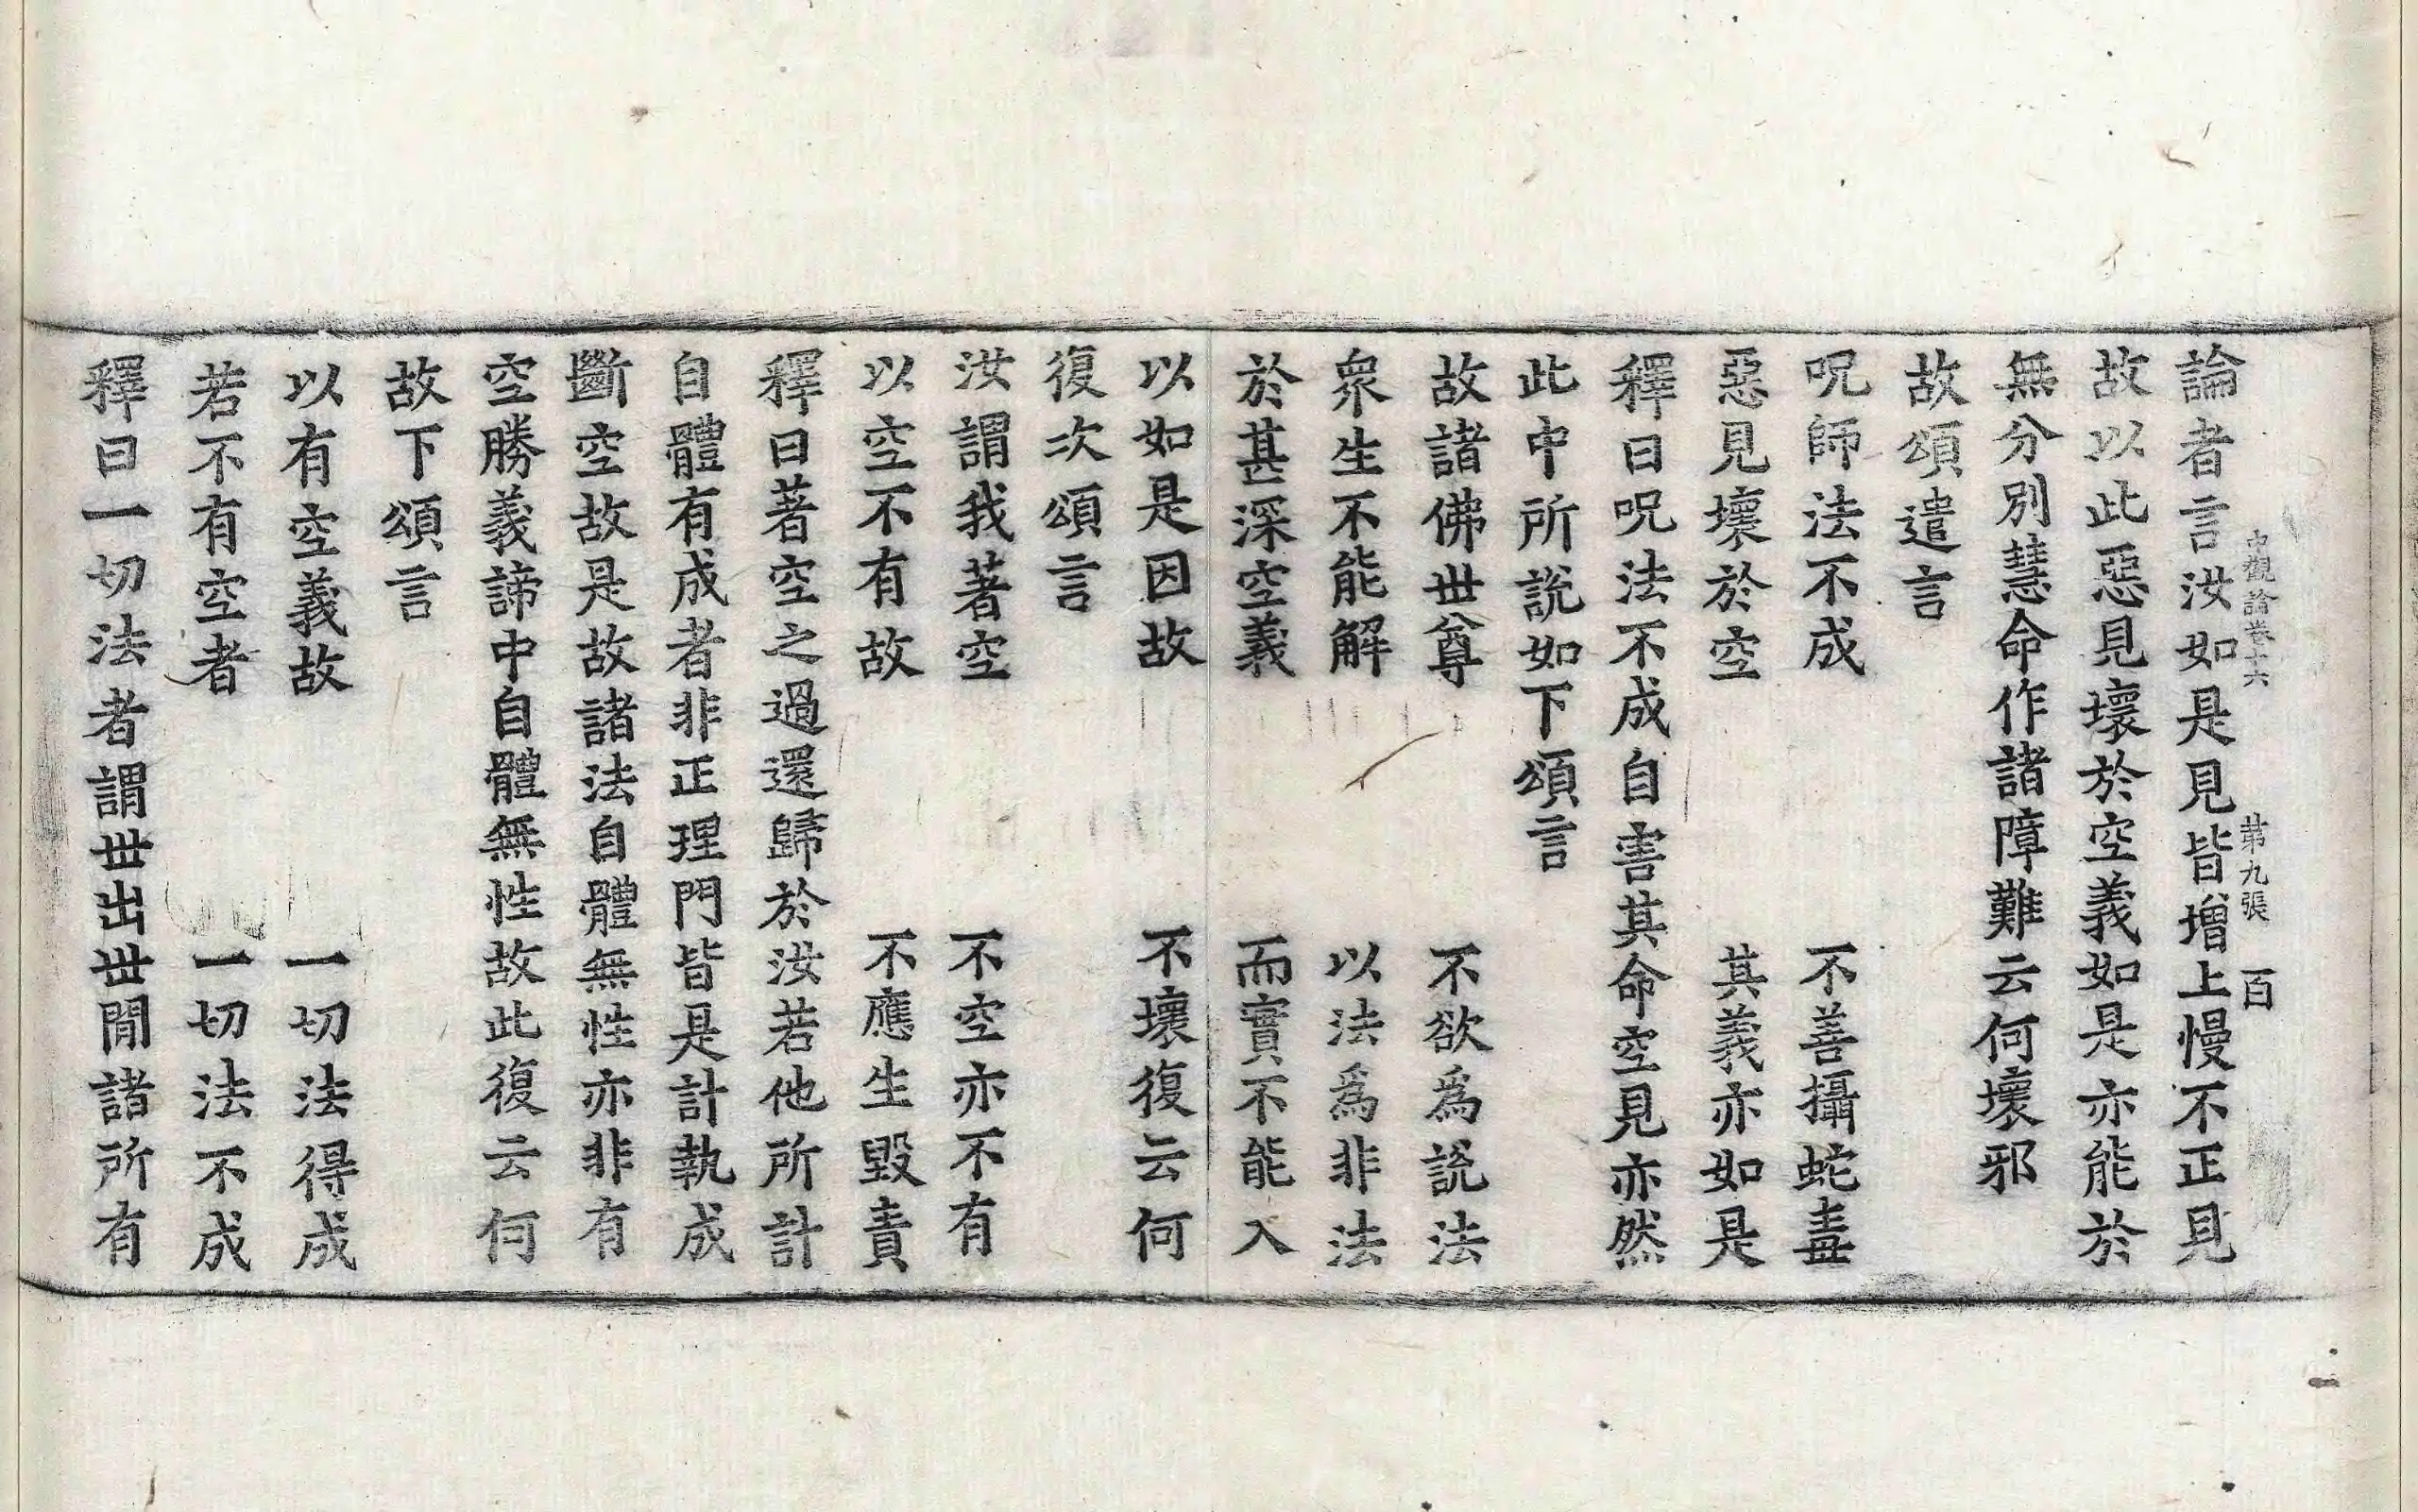 中觀論卷十六 第九張 百
論者言汝如是見皆增上慢不正見
故以此惡見壞於空義如是亦能於
無分別慧命作諸障難云何壞邪
故頌遣言
呪師法不成 不善攝蛇毒
惡見壞於空 其義亦如是
釋曰呪法不成自害其命空見亦然
此中所說如下頌言
故諸佛世尊 不欲爲說法
衆生不能解 以法爲非法
於甚深空義 而實不能入
以如是因故 不壞復云何
復次頌言
汝謂我著空 不空亦不有
以空不有故 不應生毀責
釋曰著空之過還歸於汝若他所計
自體有成者非正理門皆是計執成
斷空故是故諸法自體無性亦非有
空勝義諦中自體無性故此復云何
故下頌言
以有空義故 一切法得成
若不有空者 一切法不成
釋曰一切法者謂世出世間諸所有